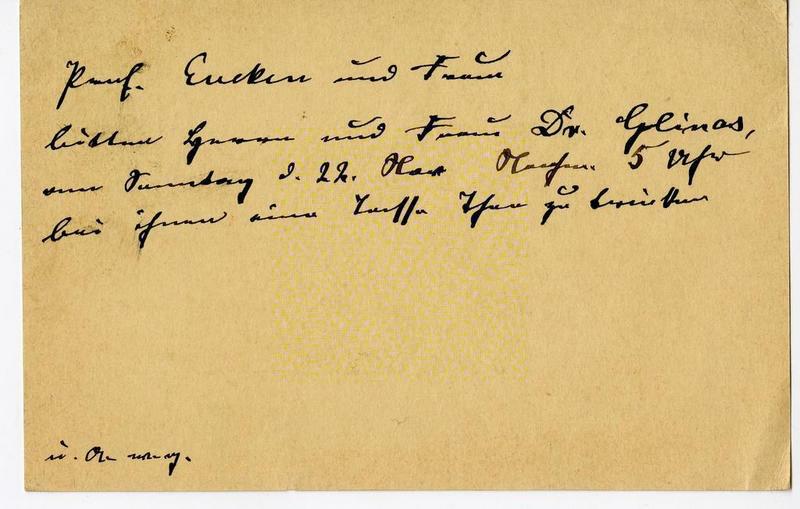 Prof. Eucken und Frau
bitten Herrn und Frau Dr. Glinos,
am Sonntag d. 22. Nov Nachm. 5 Uhr
bei ihnen eine Tasse Thee zu trinken
u. A. w. g.